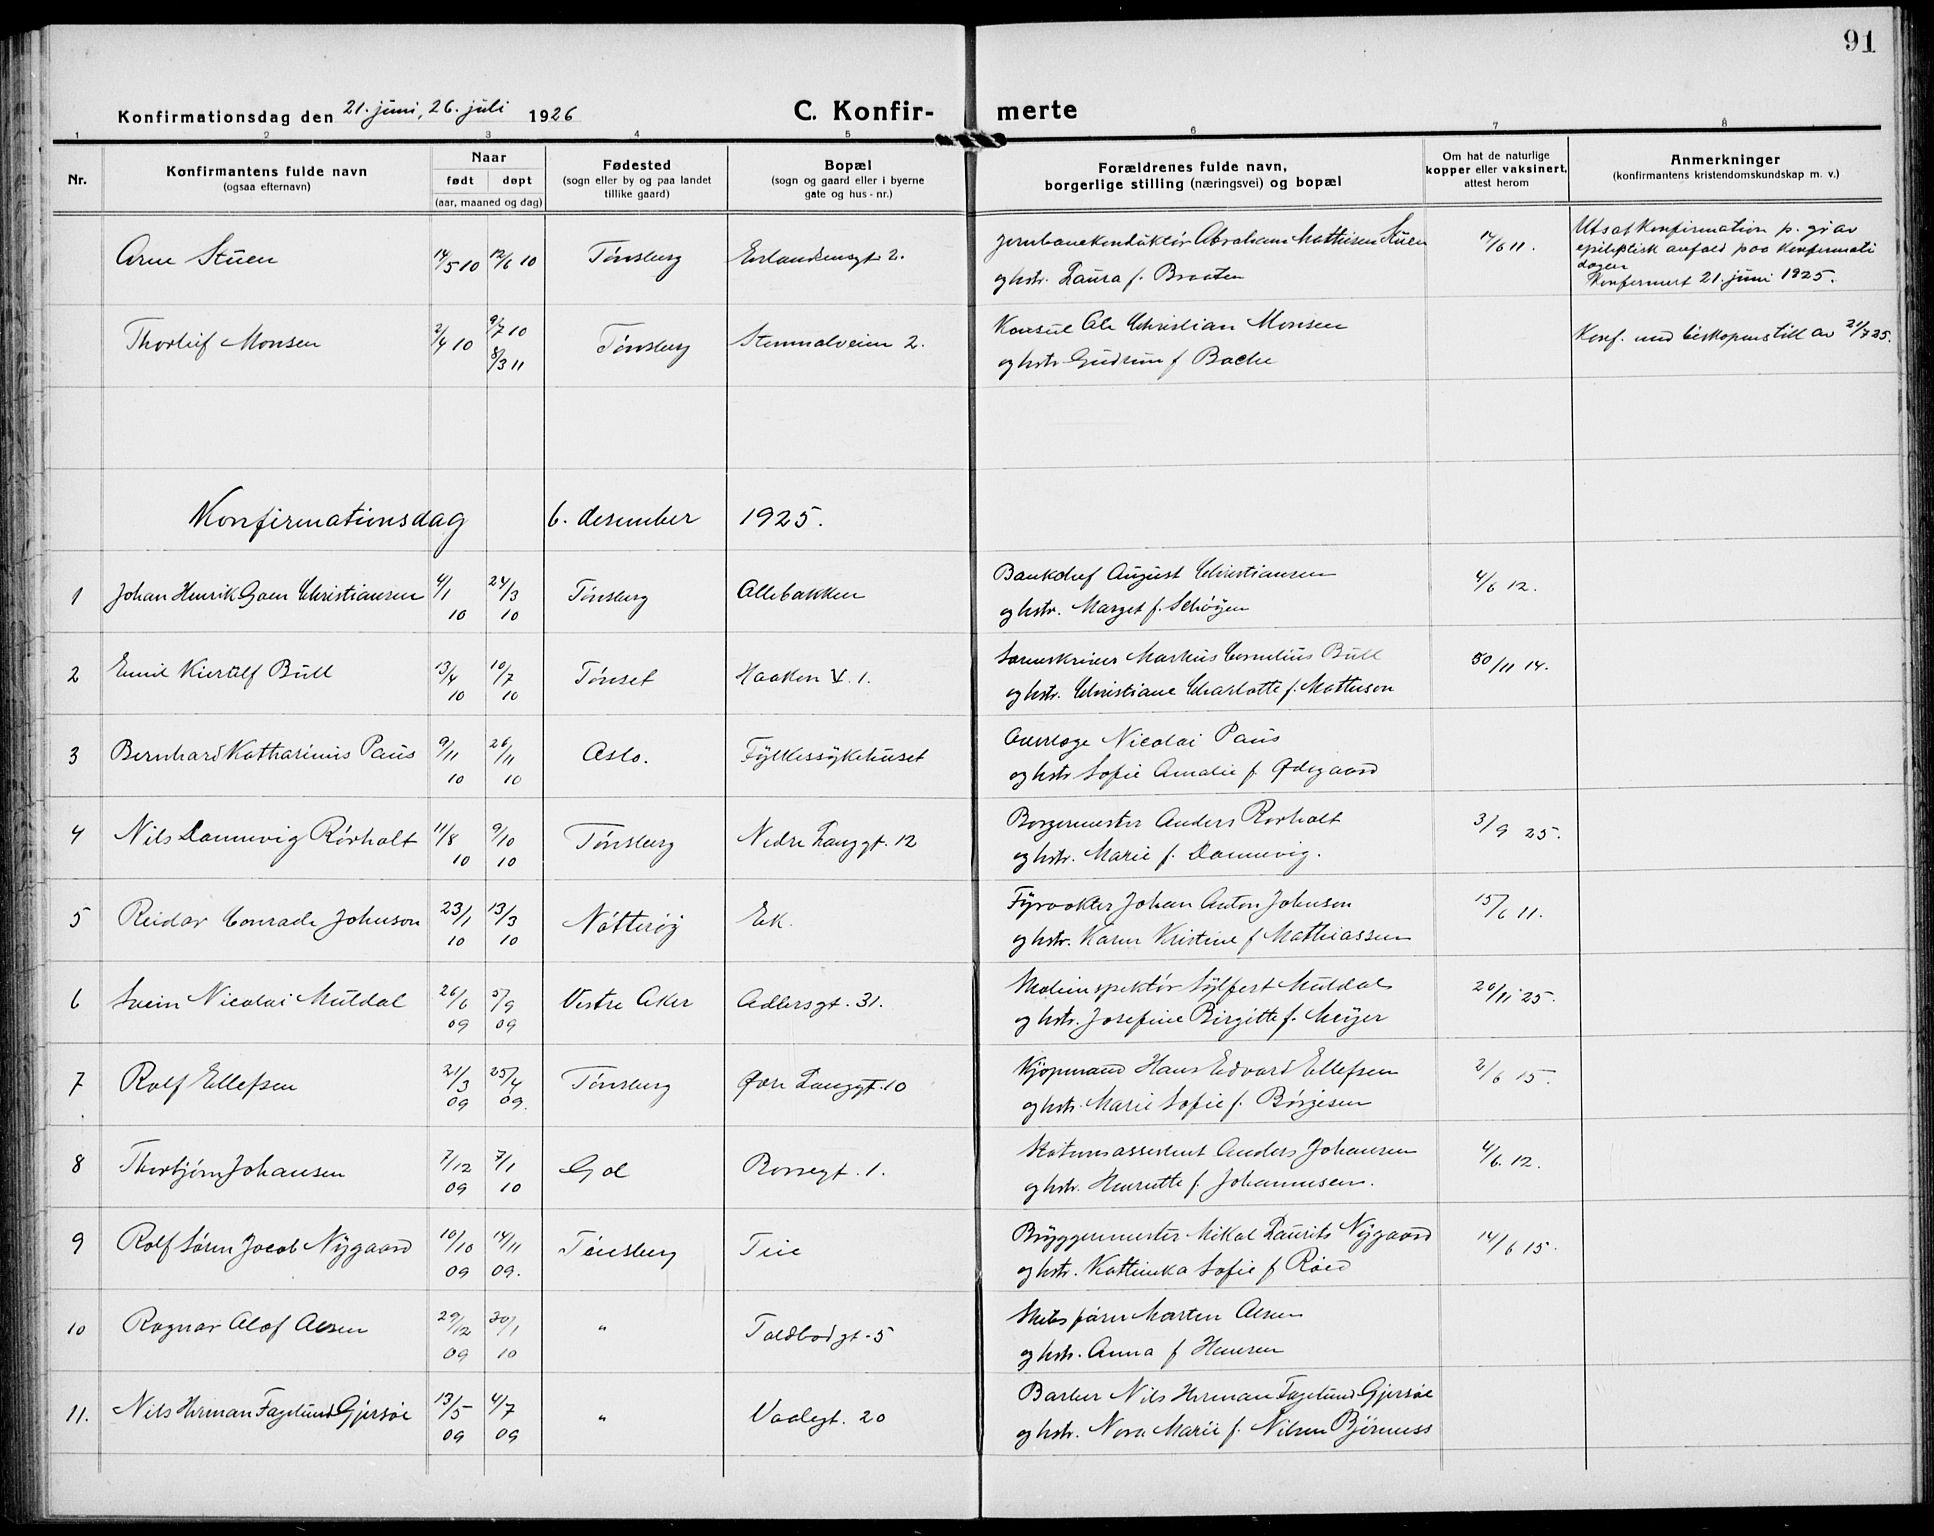 91
Konfirmationsdag den 21. juni, 26. juli 1926
C. Konfir- merte
1 2 3 4 5 6 7 8
Nr.
Konfirmantens fulde navn
(ogsaa efternavn)
Naar
født døpt
(aar, maaned og dag)
Fødested
(sogn eller by og paa landet
tillike gaard)
Bopæl
(sogn og gaard eller i byerne
gate og hus-nr.)
Forældrenes fulde navn,
borgerlige stilling (næringsvei) og bopæl
Om hat de naturlige
kopper eller vaksinert,
attest herom
Anmerkninger
(konfirmantens kristendomskundskap m. v.)
Arne Stuen 14/5 10 12/6 10 Tønsberg Erlandsensgt. 2. Jernbanekonduktør Abraham Mathisen Stuen 14/6 11. Utsat Konfirmation p. gr av
epileptisk anfald paa Konfirmati
dagen
og hstr. Laura f. Braaten Konfirmert 21. juni 1925.
Thorleif Monsen 2/4 10 9/7 10 Tønsberg Stenmalveien 2. Konsul Ole Christian Monsen
8/3 11 og hstr. Gudrun f Bache Konf. med biskopens till av 21/7 25.
Konfirmationsdag 6. desember 1925.
1 Johan Henrik Christiansen 4/1 10 24/3 10 Tønsberg Allebakken Bankchef August Christiansen 4/6 12.
og hstr. Marget f. Schøyen
2 Emil Kierulf Bull 13/4 10 10/7 10 Tønset Haakon V. 1. Sorenskriver Markus Cornelius Bull 30/11 14.
og hstr. Christiane Charlotte f. Matheson
3 Bernhard Katharinus Paus 9/11 10 26/11 10 Oslo. Fylkessykehuset Overlæge Nicolai Paus
og hstr Sofie Amalie f. Ødegaard
4 Nils Dannevig Rørholt 11/8 10 9/10 10 Tønsberg Nedre Langgt. 12 Borgermester Anders Rørholt 3/9 25.
og hstr. Marie f. Dannevig.
5 Reidar Conrade Johnson 23/1 10 13/3 10 Nøtterøy Ek. Fyrvokter Johan Anton Johnson 15/6 11.
og hstr. Karen Kristine f Mathiassen
6 Svein Nicolai Muldal 26/6 09 5/9 09 Vestre Aker Adlersgt. 31. Skoleinspektør Sylfest Muldal 20/11 25.
og hstr. Josefine Birgitte f. Meyer
7 Rolf Ellefsen 21/3 09 25/4 09. Tønsberg Øvre Langgt. 10 Kjøpmand Hans Edvard Ellefsen 2/6 15.
og hstr. Marie Sofie f. Børgesen
8 Thorbjørn Johansen 7/12 09 7/1 10 Gol Rossegt. 1. Stationsassistent Anders Johansen 4/6. 12.
og hstr. Henriette f. Johannesen.
9 Rolf Søren Jacob Nygaard 10/10 09 14/11 09. Tønsberg Teie Bryggermester Mikal Laurits Nygaard 14/6 15.
og hstr. Kattinka Sofie f Røed
10 Ragnar Olaf Olsen 29/12 09 30/1 10 " Toldbodgt. 5 Skibsfører Marten Olsen
og hstr. Anna f Hansen
11. Nils Herman Fagelund Gjersøe 13/5 09 4/7 09 " Vaalegt. 20 Barber Nils Herman Fagelund Gjersøe
og hstr. Nora Marie f. Nilsen Bjørness